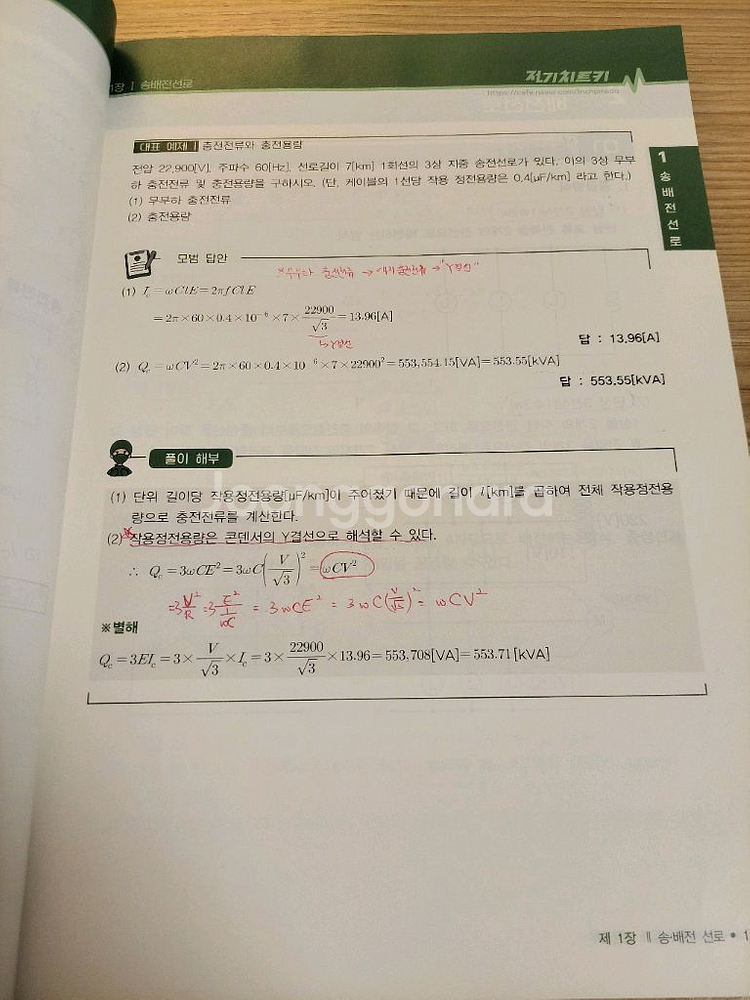 1장 | 송배전선로
전기치트키
대표 예제 | 충전전류와 충전용량
전압 22,900[V], 주파수 60[Hz], 선로길이 7[km] 1회선의 3상 지중 송전선로가 있다. 이의 3상 무부
하 충전전류 및 충전용량을 구하시오. (단, 케이블의 1선당 작용 정전용량은 0.4[μF/km] 라고 한다.)
(1) 무부하 충전전류
(2) 충전용량
1
송
배
전
선
로
모범 답안
충전전류 → → "Y결선"
(1) I_c = ωClE = 2πfClE
= 2π×60×0.4×10⁻⁶×7×22900/√3 = 13.96[A]
↳Y결선
답 : 13.96[A]
(2) Q_c = ωCV² = 2π×60×0.4×10⁻⁶×7×22900² = 553,554.15[VA] = 553.55[kVA]
답 : 553.55[kVA]
풀이 해부
(1) 단위 길이당 작용정전용량[μF/km]이 주어졌기 때문에 길이 l[km]를 곱하여 전체 작용정전용
량으로 충전전류를 계산한다.
joonggonara
(2) 작용정전용량은 콘덴서의 Y결선으로 해석할 수 있다.
∴ Q_c = 3ωCE² = 3ωC(V/√3)² = ωCV²
=3V²/R =3E²/(1/ωC) = 3ωCE² = 3ωC(V/√3)² = ωCV²
※별해
Q_c = 3EI_c = 3×V/√3×I_c = 3×22900/√3×13.96 = 553,708[VA] = 553.71[kVA]
제 1장 ∥ 송·배전 선로 • 1